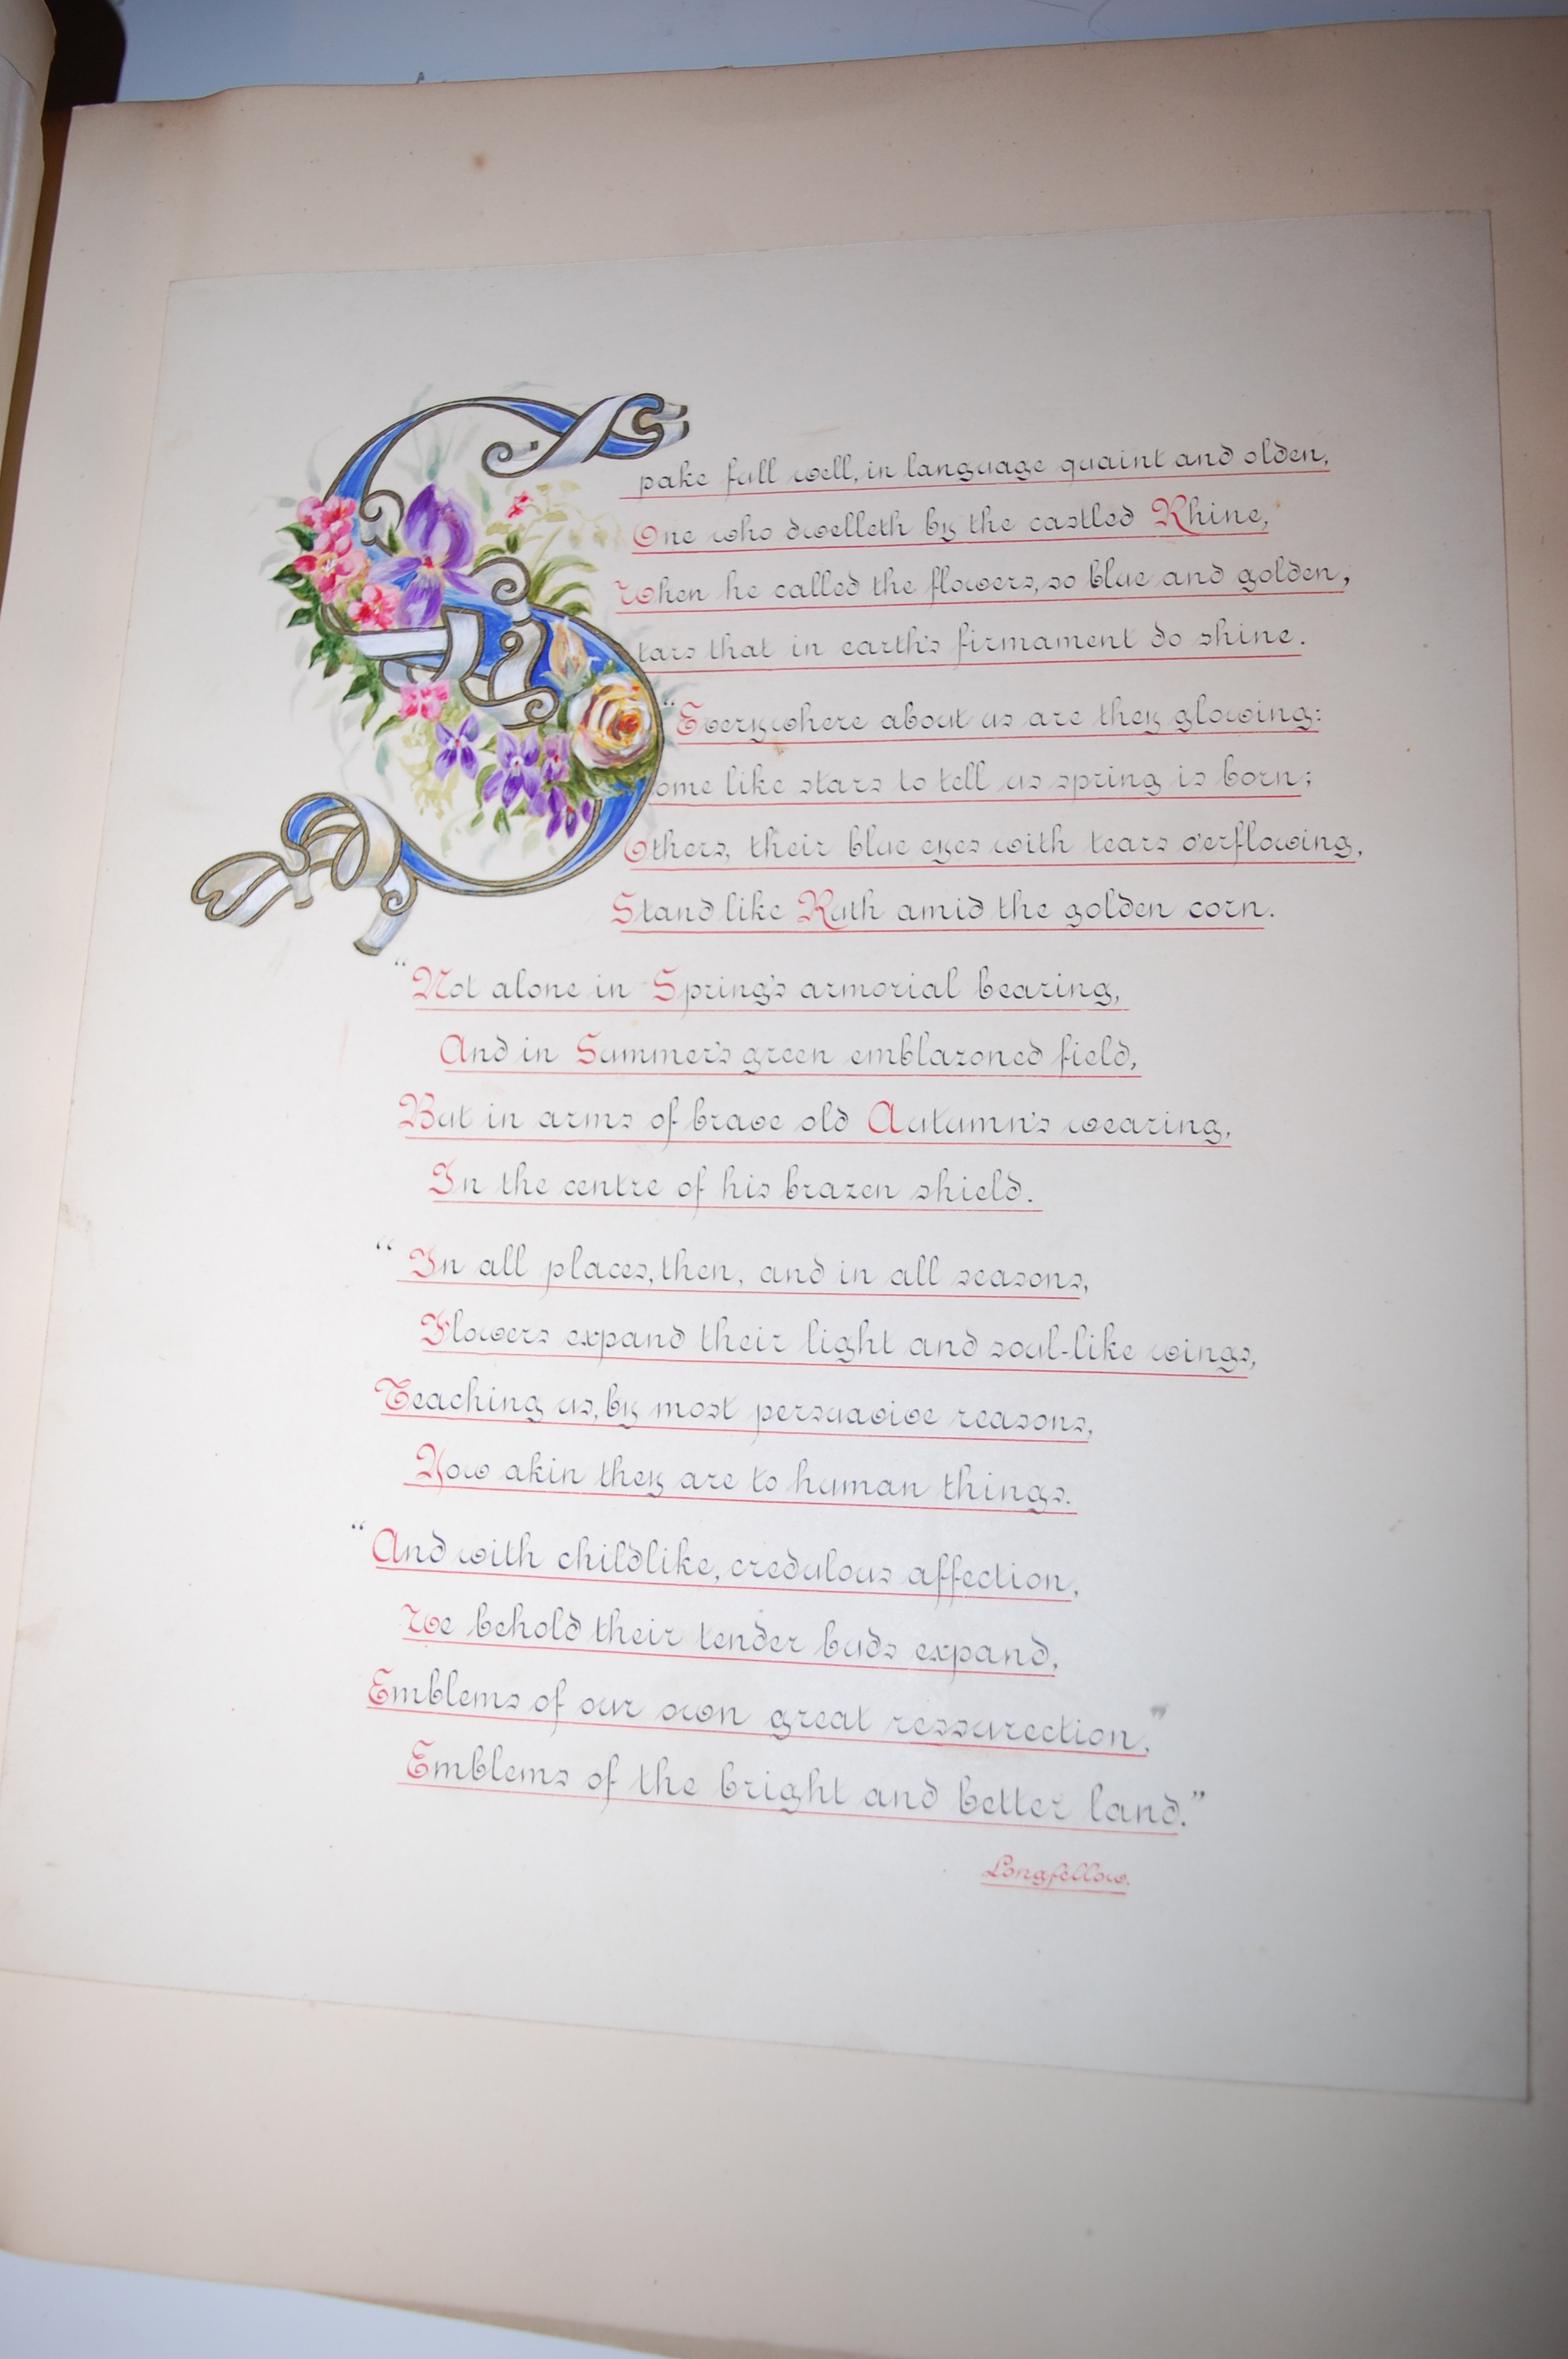 Spake full well, in language quaint and olden,
One who dwelleth by the castled Rhine,
When he called the flowers, so blue and golden,
Stars that in earth's firmament do shine.
"Everywhere about us are they glowing:
Some like stars to tell us spring is born;
Others, their blue eyes with tears o'erflowing,
Stand like Ruth amid the golden corn.
"Not alone in Spring's armorial bearing,
And in Summer's green emblazoned field,
But in arms of brave old Autumn's wearing,
In the centre of his brazen shield.
"In all places, then, and in all seasons,
Flowers expand their light and soul-like wings,
Teaching us, by most persuasive reasons,
How akin they are to human things.
"And with childlike, credulous affection,
We behold their tender buds expand,
Emblems of our own great ressurection."
Emblems of the bright and better land."
Longfellow.